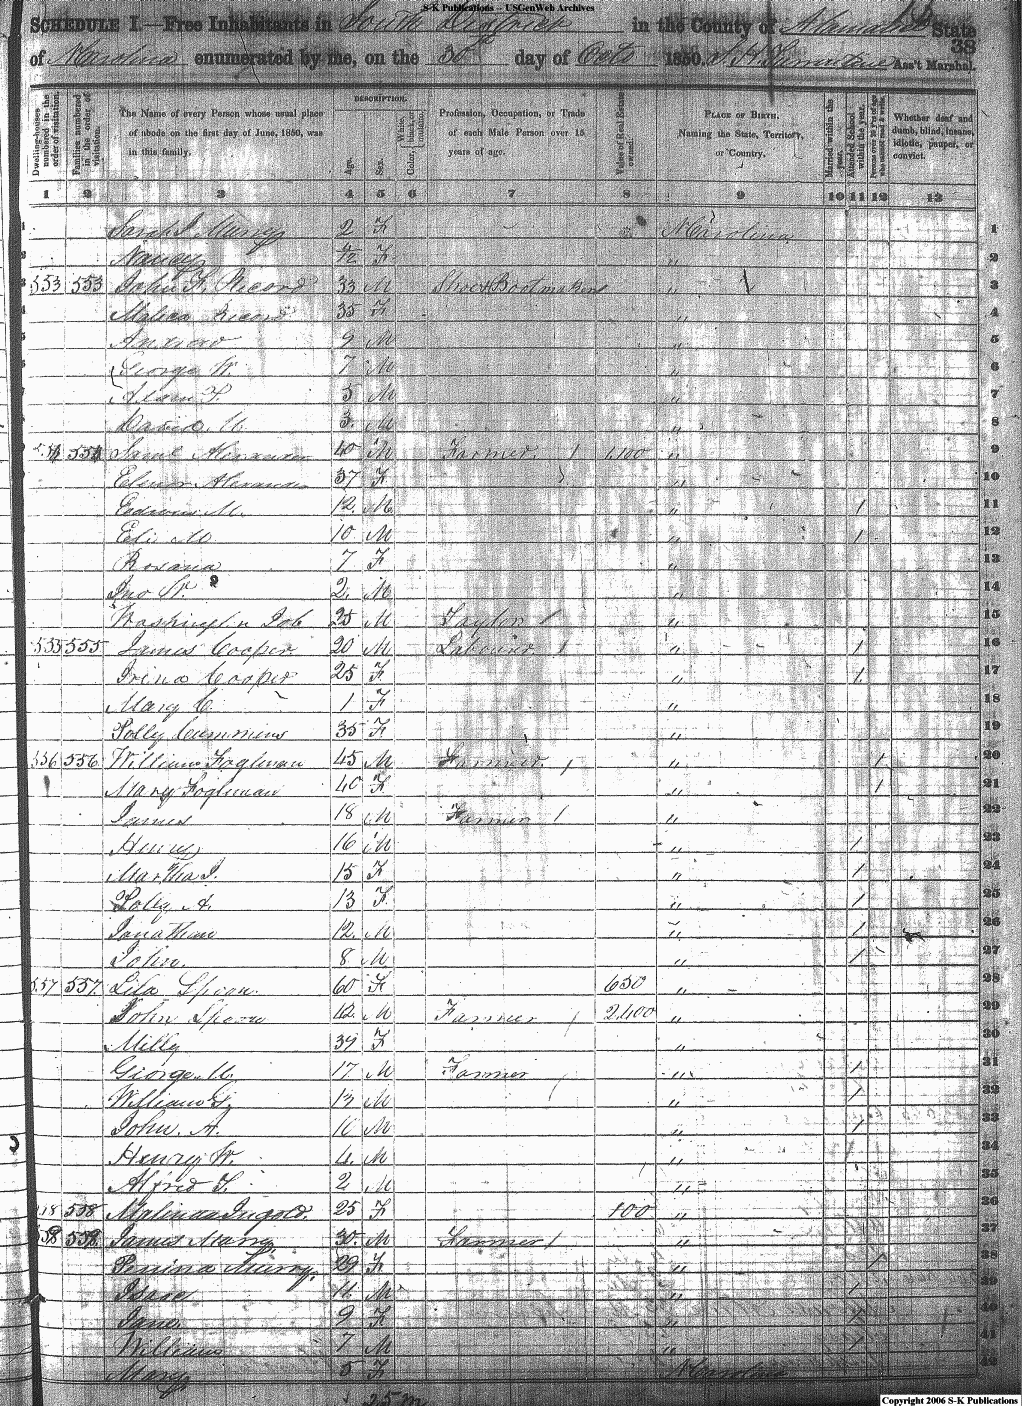 S-K Publications -- USGenWeb Archives
SCHEDULE I.—Free Inhabitants in South District in the County of Alamance State
38
of N Carolina enumerated by me, on the 30th day of Octo 1850. Ass't Marshal.
Dwelling-houses numbered in the order of visitation.
Families numbered in the order of visitation.
The Name of every Person whose usual place of abode on the first day of June, 1850, was in this family.
DESCRIPTION.
Age.
Sex.
Color, White, black, or mulatto.
Profession, Occupation, or Trade of each Male Person over 15 years of age.
Value of Real Estate owned.
PLACE OF BIRTH. Naming the State, Territory, or Country.
Married within the year.
Attended School within the year.
Persons over 20 y'rs of age who cannot read & write.
Whether deaf and dumb, blind, insane, idiotic, pauper, or convict.
1 2 3 4 5 6 7 8 9 10 11 12 13
1 Sarah J. Murry 2 F N Carolina 1
2 Nancy F " 2
3 553 553 John F. Ricord 33 M Shoe & Bootmaker " 3
4 Ricord 35 F " 4
5 Andrew 9 M " 5
6 George W. 7 M " 6
7 F. 5 M " 7
8 David 3 M " 8
9 554 554 Saml Alexander 40 M Farmer 1,100 " 9
Elenor Alexander 37 F " 10
Edwin M. 12 M " 1 11
Eli M 10 M " 1 12
Rosana 7 F " 13
Jno W. 2 M " 14
Washington Job 25 M Taylor " 15
555 555 James Cooper 20 M Labourer " 1 16
Irina Cooper 25 F " 1 17
Mary C. 1 F " 18
Polly Cummins 35 F " 19
556 556 William Fogleman 45 M Farmer " 1 20
Mary Fogleman 40 F " 1 21
James 18 M Farmer " 22
Henry 16 M " 1 23
Martha J. 15 F " 1 24
Polly A. 13 F " 1 25
Jonathan 12 M " 1 26
John 8 M " 1 27
557 557 Lila Spoon 60 F 650 " 28
John Spoon 42 M Farmer 2400 " 29
Milly 39 F " 30
George M. 17 M Farmer " 1 31
William 13 M " 1 32
John. A. M " 1 33
Henry W. 4 M " 34
Alfred F. 2 M " 35
558 Malinda Ingold. 25 F 100 " 36
558 558 James Murry 30 M Farmer " 37
Murry 29 F " 1 38
Isaac 11 M " 1 39
Jane 9 F " 1 40
William 7 M " 1 41
Mary 5 F N Carolina 42
25 m
Copyright 2006 S-K Publications